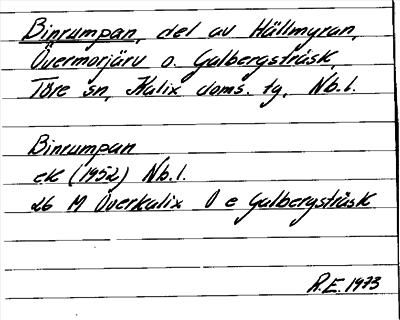 Binrumpan, del av Hällmyran,
Övermorjärv o. Galbergsträsk,
Töre sn, Kalix doms. tg, Nb. l.
Binrumpan
ek (1952) Nb. l.
26 M Överkalix O e Galbergsträsk
R.E. 1973